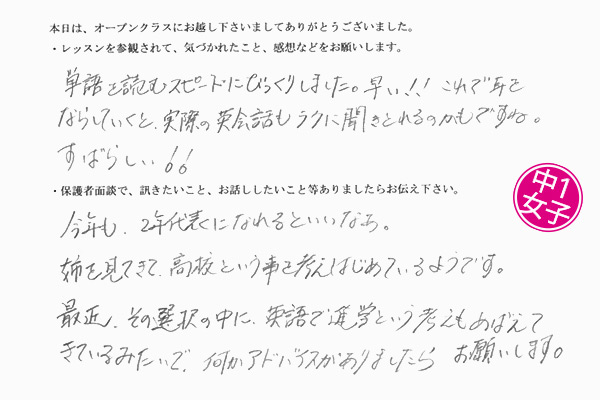 本日は、オープンクラスにお越し下さいましてありがとうございました。
・レッスンを参観されて、気づかれたこと、感想などをお願いします。
単語を読むスピードにびっくりしました。早い!! これで耳を
ならしていくと、実際の英会話もラクに聞きとれるのかもですね。
すばらしい!!
・保護者面談で、訊きたいこと、お話ししたいこと等ありましたらお伝え下さい。
中1
女子
今年も、2年代表になれるといいなぁ。
姉を見てきて、高校という事を考えはじめているようです。
最近、その選択の中に、英語で進学という考えもめばえて
きているみたいで、何かアドバイスがありましたら お願いします。